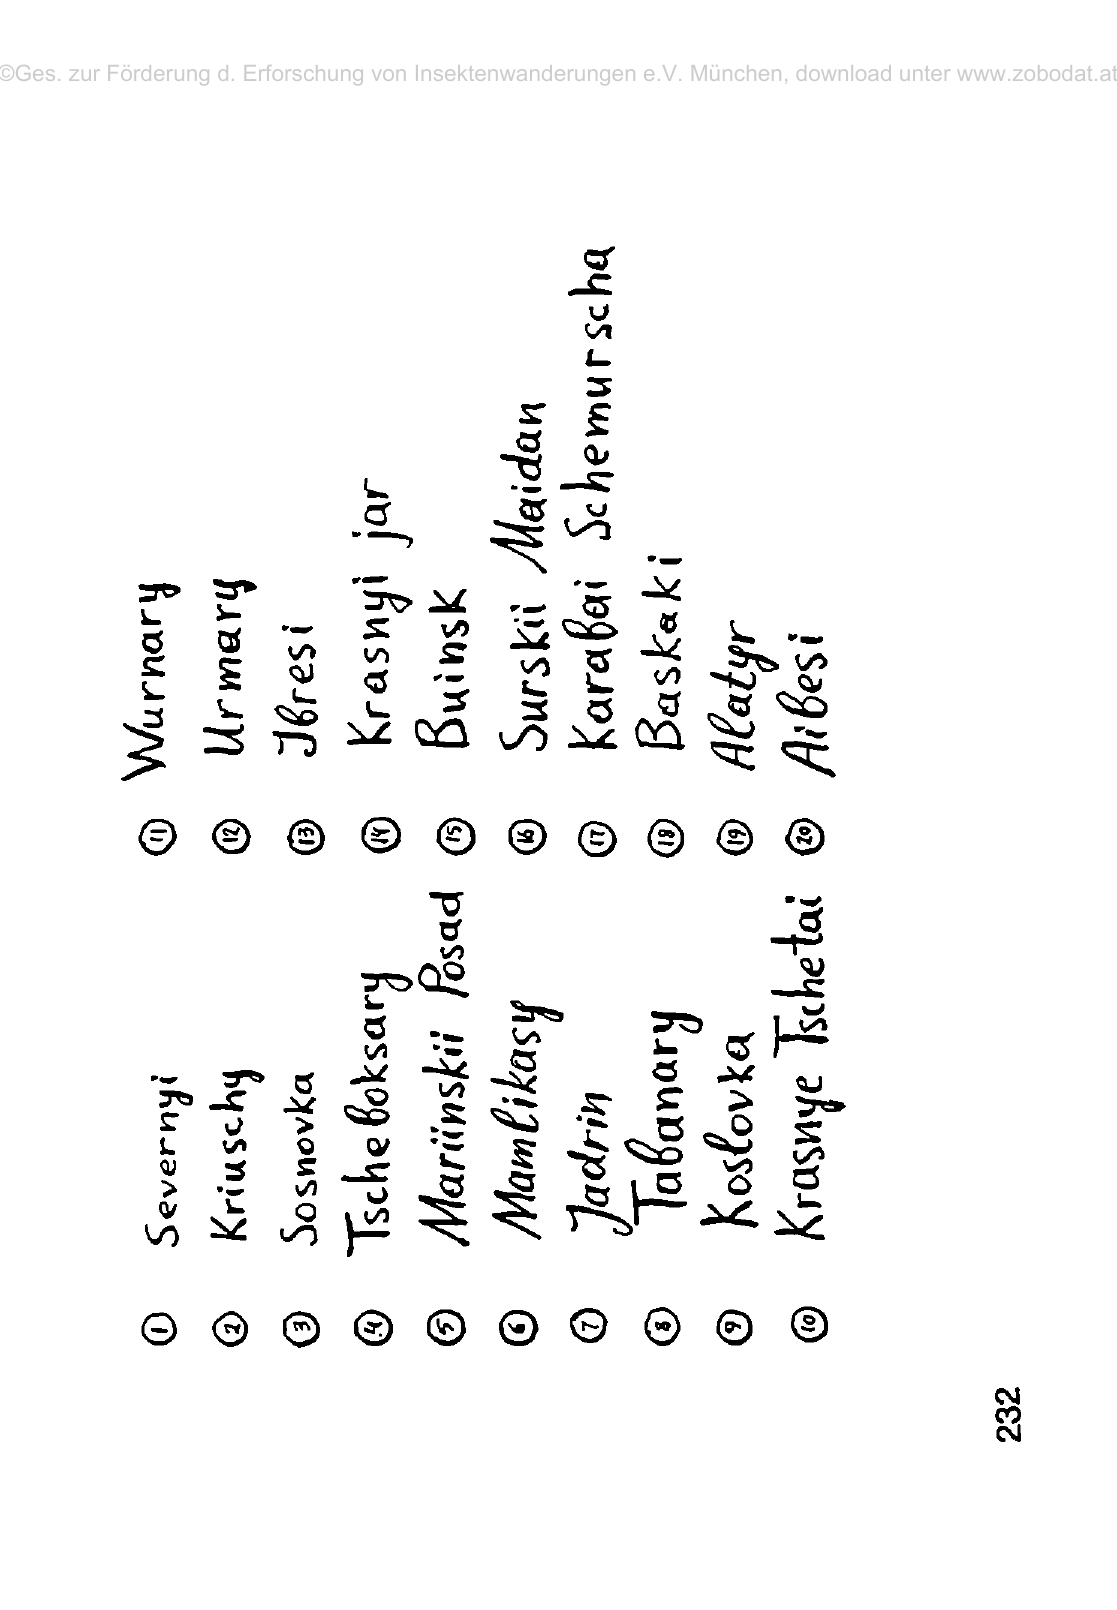 ©Ges. zur Förderung d. Erforschung von Insektenwanderungen e.V. München, download unter www.zobodat.at
① Severnyi
② Kriuschy
③ Sosnovka
④ Tscheboksary
⑤ Mariinskii Posad
⑥ Mamlikasy
⑦ Jadrin
⑧ Tabanary
⑨ Koslovka
⑩ Krasnye Tschetai
⑪ Wurnary
⑫ Urmary
⑬ Ibresi
⑭ Krasnyi jar
⑮ Buinsk
⑯ Surskii Maidan
⑰ Karabai Schemurscha
⑱ Baskaki
⑲ Alatyr
⑳ Aibesi
232